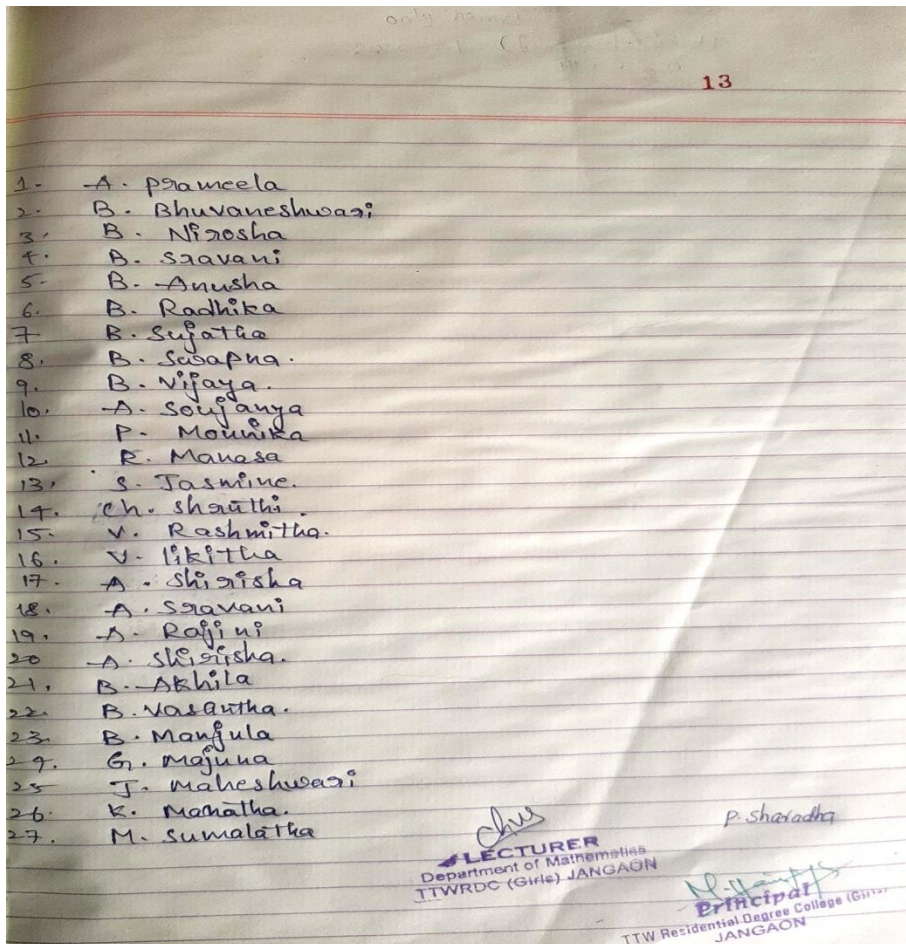 only names
13
1- A. Prameela
2. B. Bhuvaneshwari
3. B. Nirosha
4. B. Sravani
5- B. Anusha
6. B. Radhika
7 B. Sujatha
8. B. Swapna.
9. B. Vijaya.
10. A. Soujanya
11. P. Mounika
12. R. Manasa
13, S. Jasmine.
14. Ch. Shruthi.
15. V. Rashmitha.
16. V. likitha
17. A. Shirisha
18. A. Sravani
19. A. Rajini
20 A. Shirisha.
21, B. Akhila
22. B. Vasantha.
23. B. Manjula
24. G. Majuna
25 J. Maheshwari
26. K. Mamatha.
27. M. Sumalatha
P. Sharadha
LECTURER
Department of Mathematics
TTWRDC (Girls) JANGAON
Principal
TTW Residential Degree College (Girls)
JANGAON